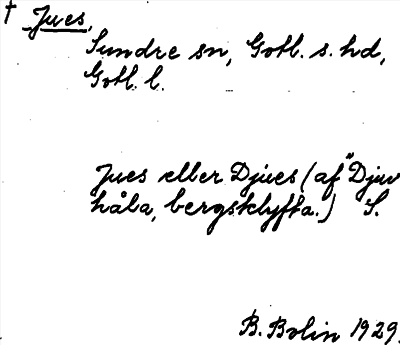 † Jues,
Sundre sn, Gotl. s. hd,
Gotl. l.
Jues eller Djues (af "Djuv
håla, bergsklyfta.) S.
B. Bolin 1929.